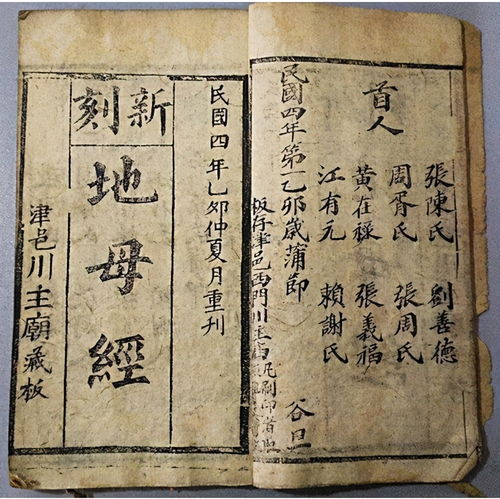 首人
張陳氏 劉善德
周胥氏 張周氏
黃在祿 張義福
江有元 賴謝氏
民國四年第一乙卯歲蒲節 谷旦
板存津邑西門川主
民國四年乙卯仲夏月重刊
新刻
地母經
津邑川主廟藏板